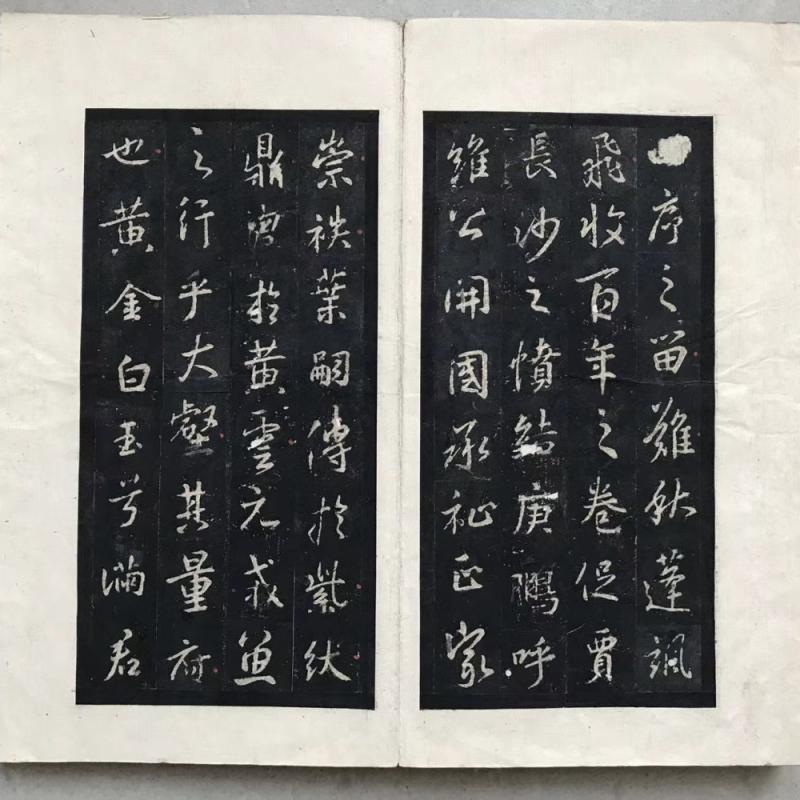 序之留難秋蓬颯
飛收百年之卷促賈
長沙之憤結庚鵩呼
雖公開國承祉正家
崇袟葉嗣傳於紫紱
鼎於黃雲元戎魚
之行乎大壑其量府
也黃金白玉兮滿君